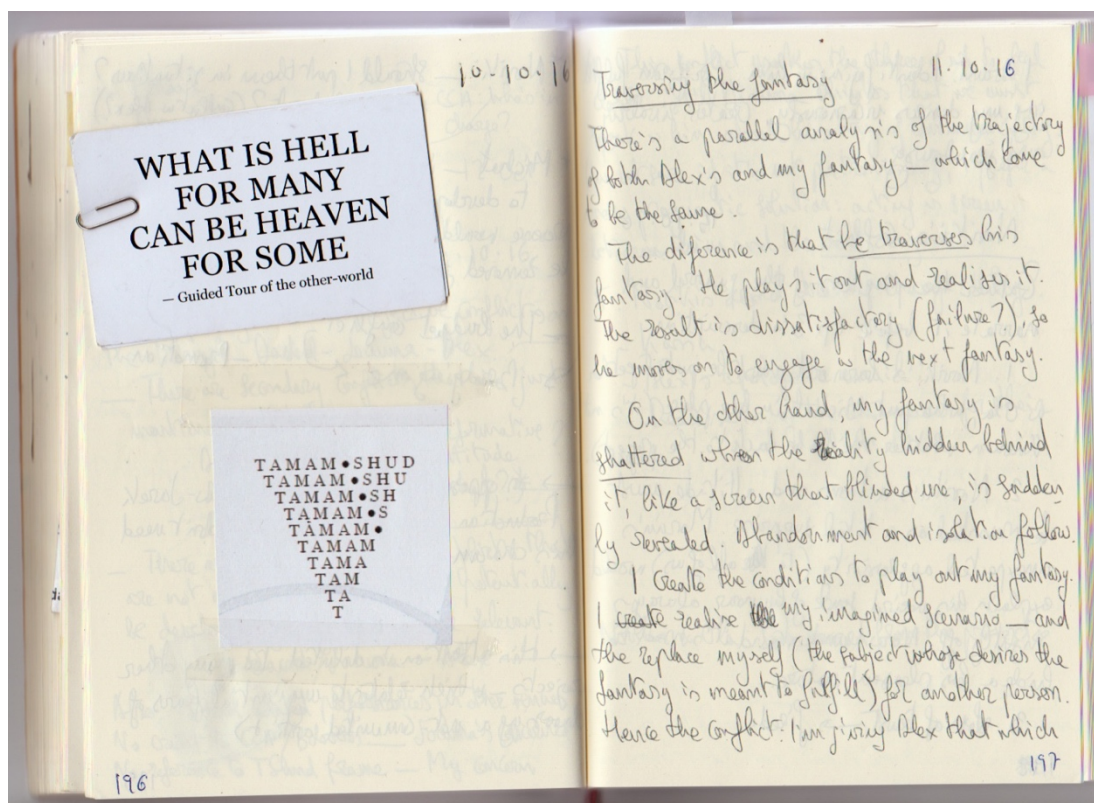 10.10.16
WHAT IS HELL
FOR MANY
CAN BE HEAVEN
FOR SOME
— Guided Tour of the other-world
TAMAM•SHUD
TAMAM•SHU
TAMAM•SH
TAMAM•S
TAMAM•
TAMAM
TAMA
TAM
TA
T
196
11.10.16
Traversing the fantasy
There's a parallel analysis of the trajectory
of both Alex's and my fantasy — which come
to be the same.
The diference is that he traverses his
fantasy. He plays it out and realises it.
The result is dissatisfactory (failure?), so
he moves on to engage in the next fantasy.
On the other hand, my fantasy is
shattered when the reality hidden behind
it, like a screen that blinded me, is sudden
ly revealed. Abandonment and isolation follow.
I create the conditions to play out my fantasy.
I create realise the my imagined scenario — and
the replace myself (the subject whose desires the
fantasy is meant to fulfill) for another person.
Hence the conflict: I'm giving Alex that which
197